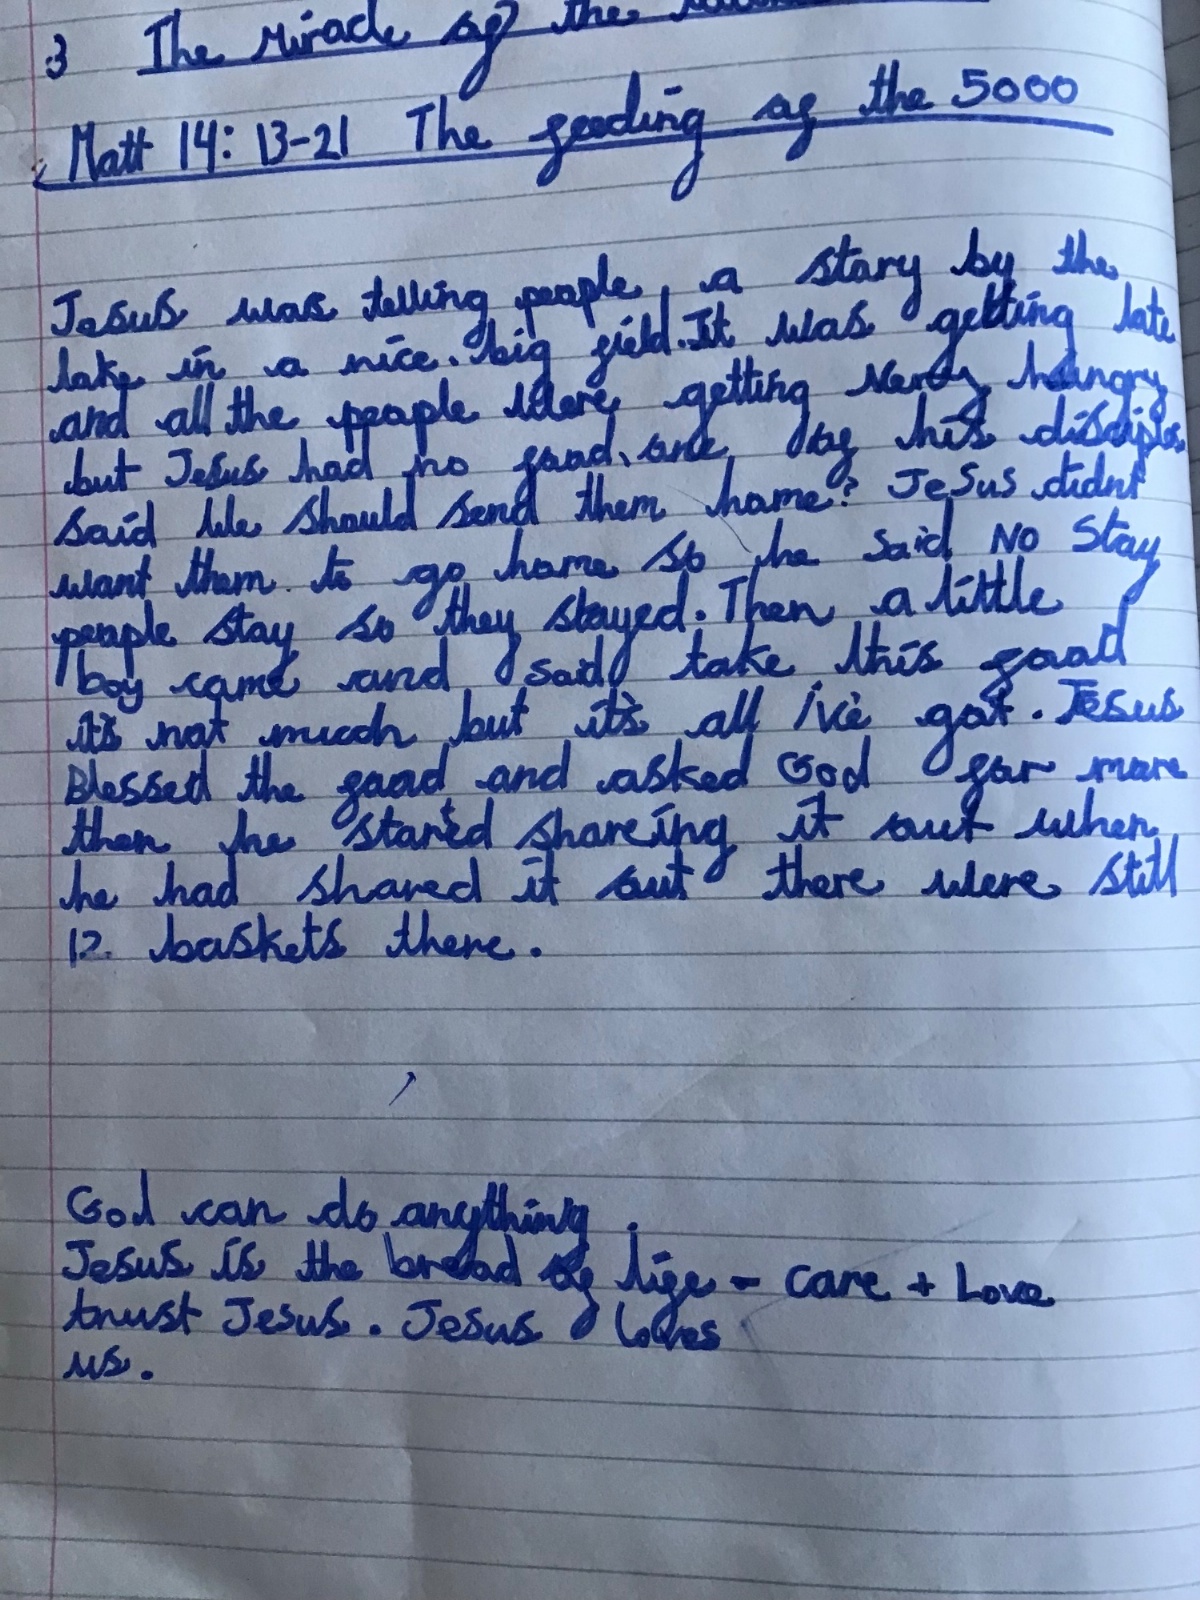 3 The Miracle of the
Matt 14: 13-21 The feeding of the 5000
Jesus was telling people a story by the
lake in a nice. big field. It was getting late
and all the people were getting very hungry
but Jesus had no food. one of his disciples
said We should send them home? Jesus didnt
want them to go home so he said No Stay
people stay so they stayed. Then a little
boy came and said take this food
it's not much but it's all I've got. Jesus
Blessed the food and asked God for more
then he started shareing it out when
he had shared it out there were still
12. baskets there.
God can do anything.
Jesus is the bread of life - care + Love
trust Jesus. Jesus loves
us.